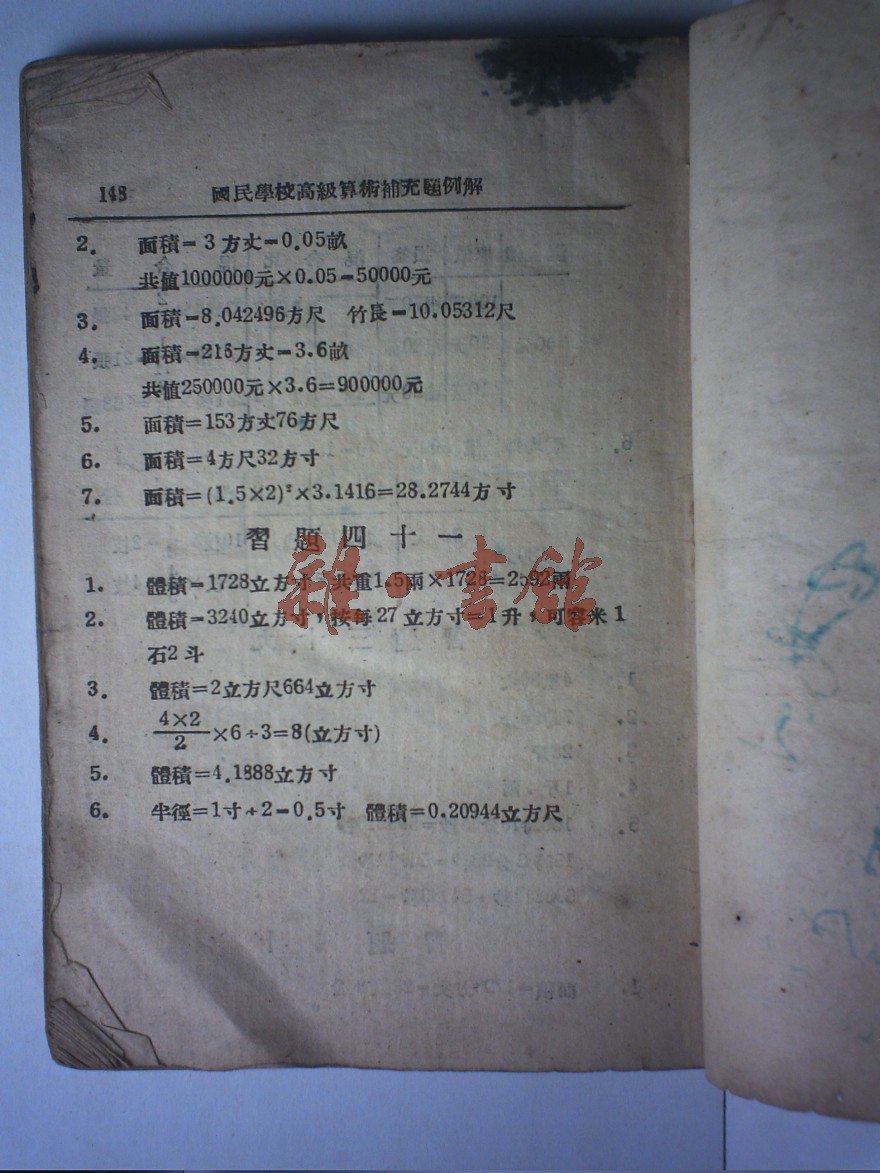 148 國民學校高級算術補充題例解
2. 面積=3方丈=0.05畝
共値1000000元×0.05=50000元
3. 面積=8.042496方尺 竹長=10.05312尺
4. 面積=216方丈=3.6畝
共値250000元×3.6=900000元
5. 面積=153方丈76方尺
6. 面積=4方尺32方寸
7. 面積=(1.5×2)²×3.1416=28.2744方寸
習題四十一
1. 體積=1728立方寸 共重1.5兩×1728=2592兩
2. 體積=3240立方寸,按每27立方寸=1升,可容米1
石2斗
3. 體積=2立方尺664立方寸
4. 4×2/2×6÷3=8(立方寸)
5. 體積=4.1888立方寸
6. 半徑=1寸÷2=0.5寸 體積=0.20944立方尺
雜·書館